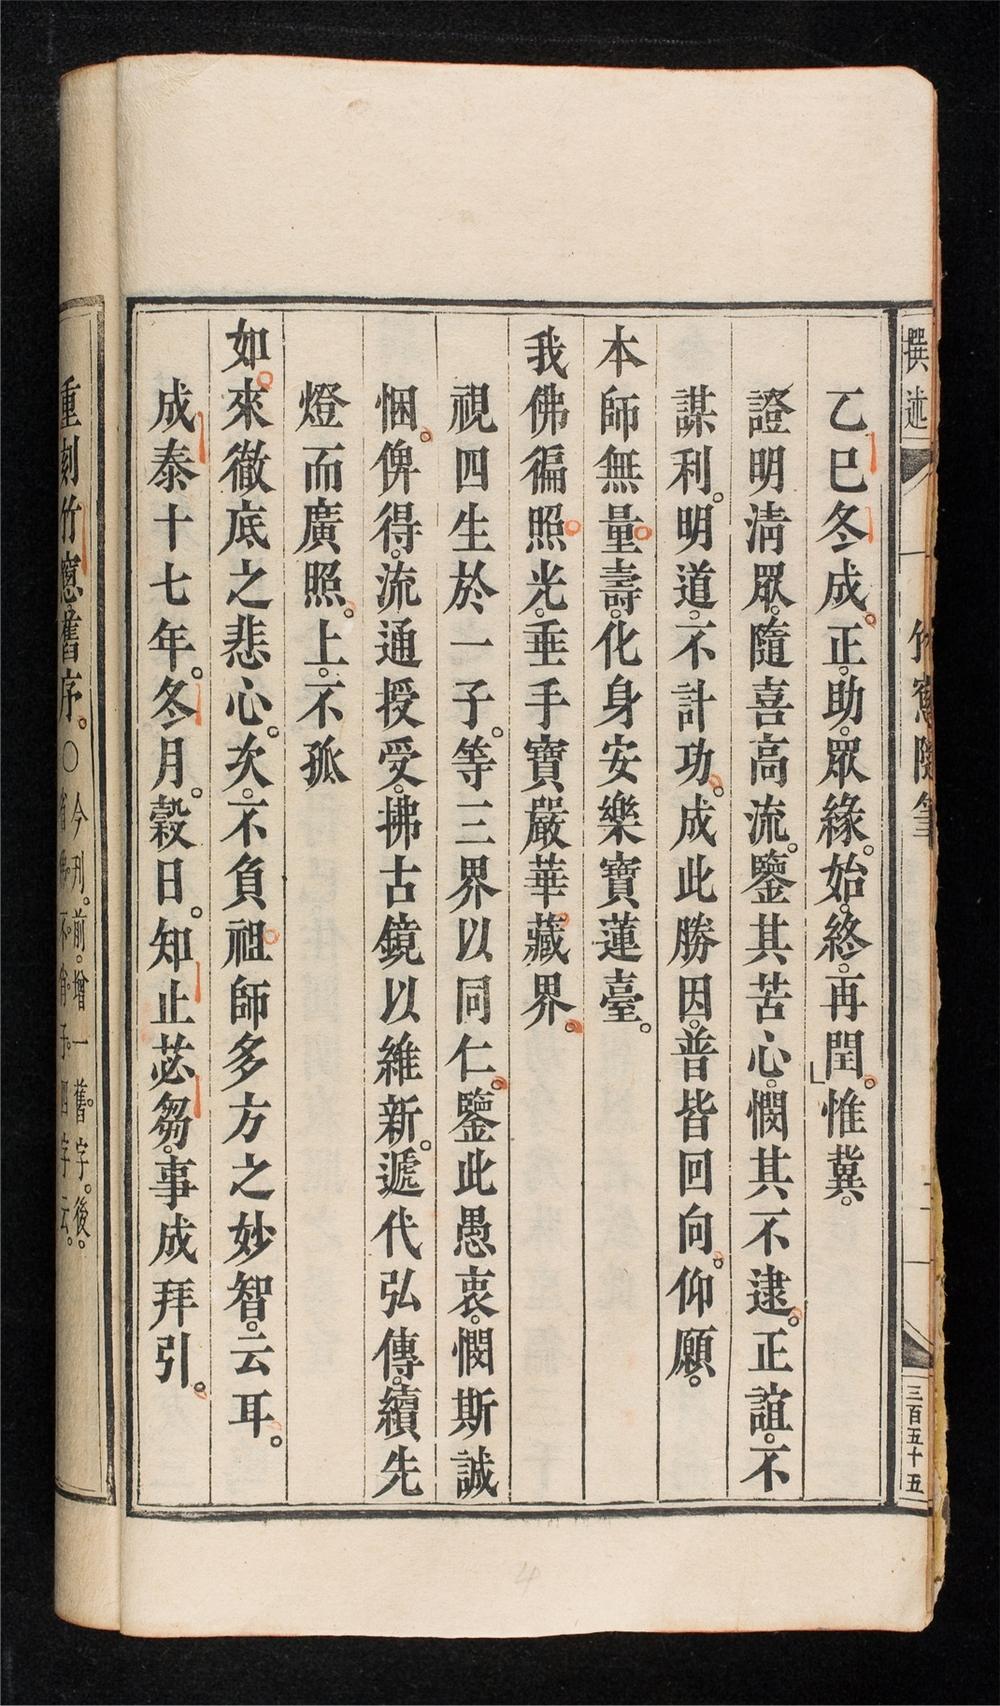 撰述
竹窻隨筆
三百五十五
乙巳冬成。正。助。眾緣。始。終。再閏。惟冀。
證明清眾。隨喜高流。鑒其苦心。憫其不逮。正誼。不
謀利。明道。不計功。成此勝因。普皆回向。仰願。
本師無量壽。化身安樂寶蓮臺。
我佛徧照光。垂手寶嚴華藏界。
視四生於一子。等三界以同仁。鑒此愚衷。憫斯誠
悃。俾得。流通授受。拂古鏡以維新。遞代弘傳。續先
燈而廣照。上。不孤
如來徹底之悲心。次。不負祖師多方之妙智。云耳。
成泰十七年。冬月。穀日。知止苾芻。事成拜引。
重刻竹窻舊序。○今刊。前。增一舊。字。後。
省四字云。